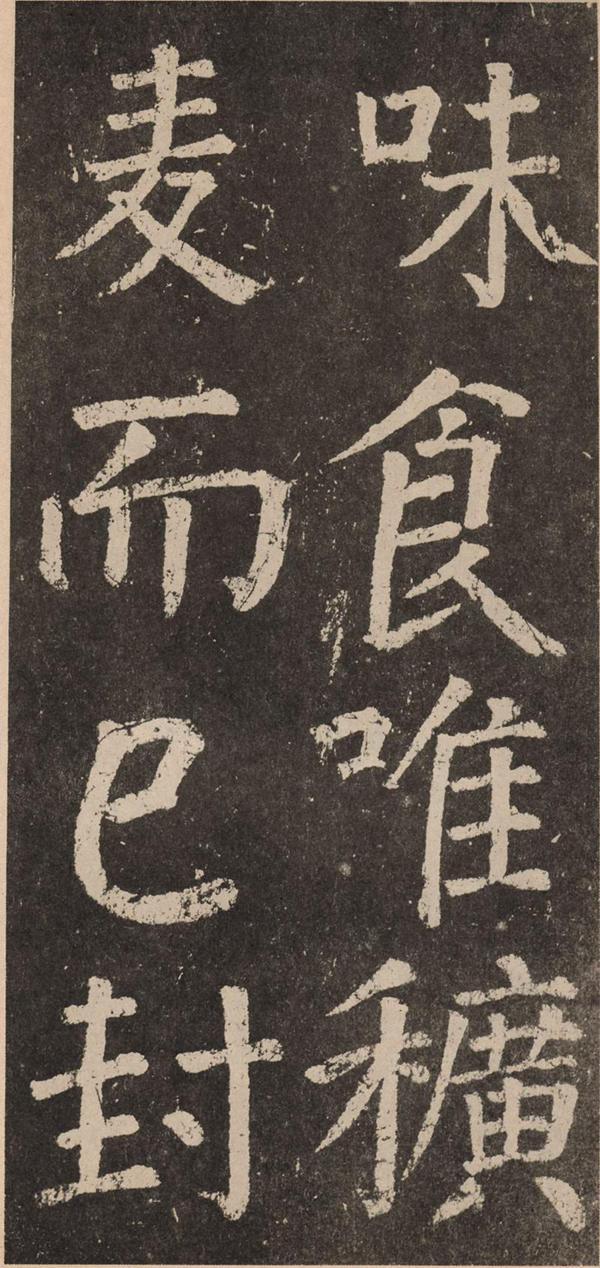 味食唯穬
麦而已封